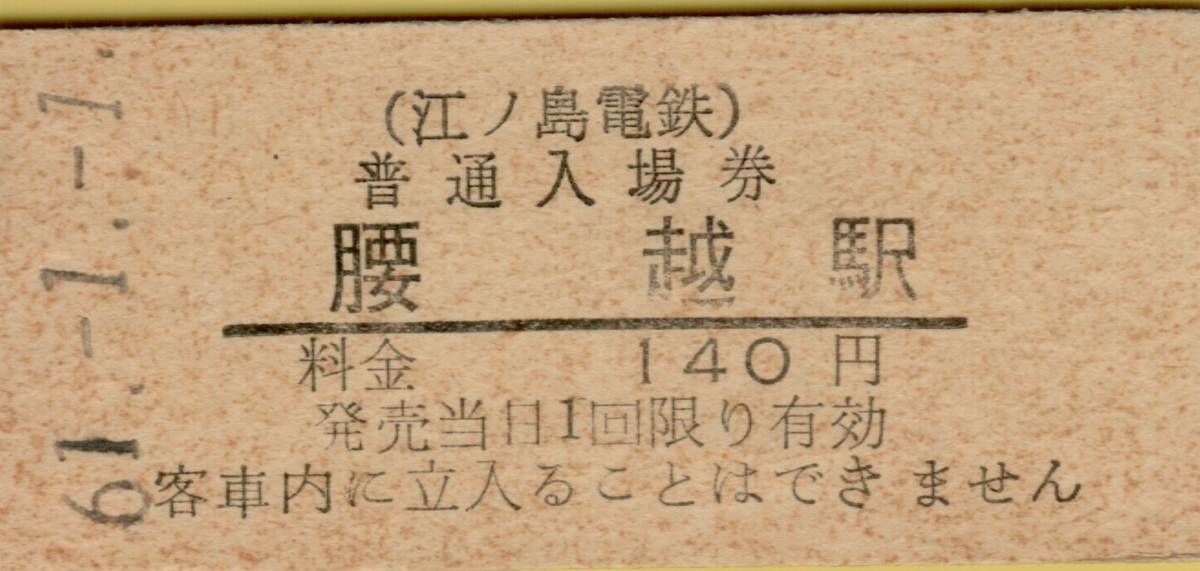 (江ノ島電鉄)
普通入場券
腰越駅
料金 140円
発売当日1回限り有効
客車内に立入ることはできません
61.-1.-1.